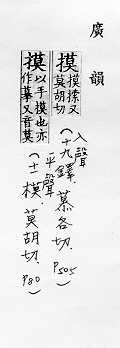 廣韻
摸 摸又
莫胡切
入聲
(十九鐸.慕各切.P505)
摸 以手摸也亦
作摹又音莫
平聲
(十一模.莫胡切.P80)